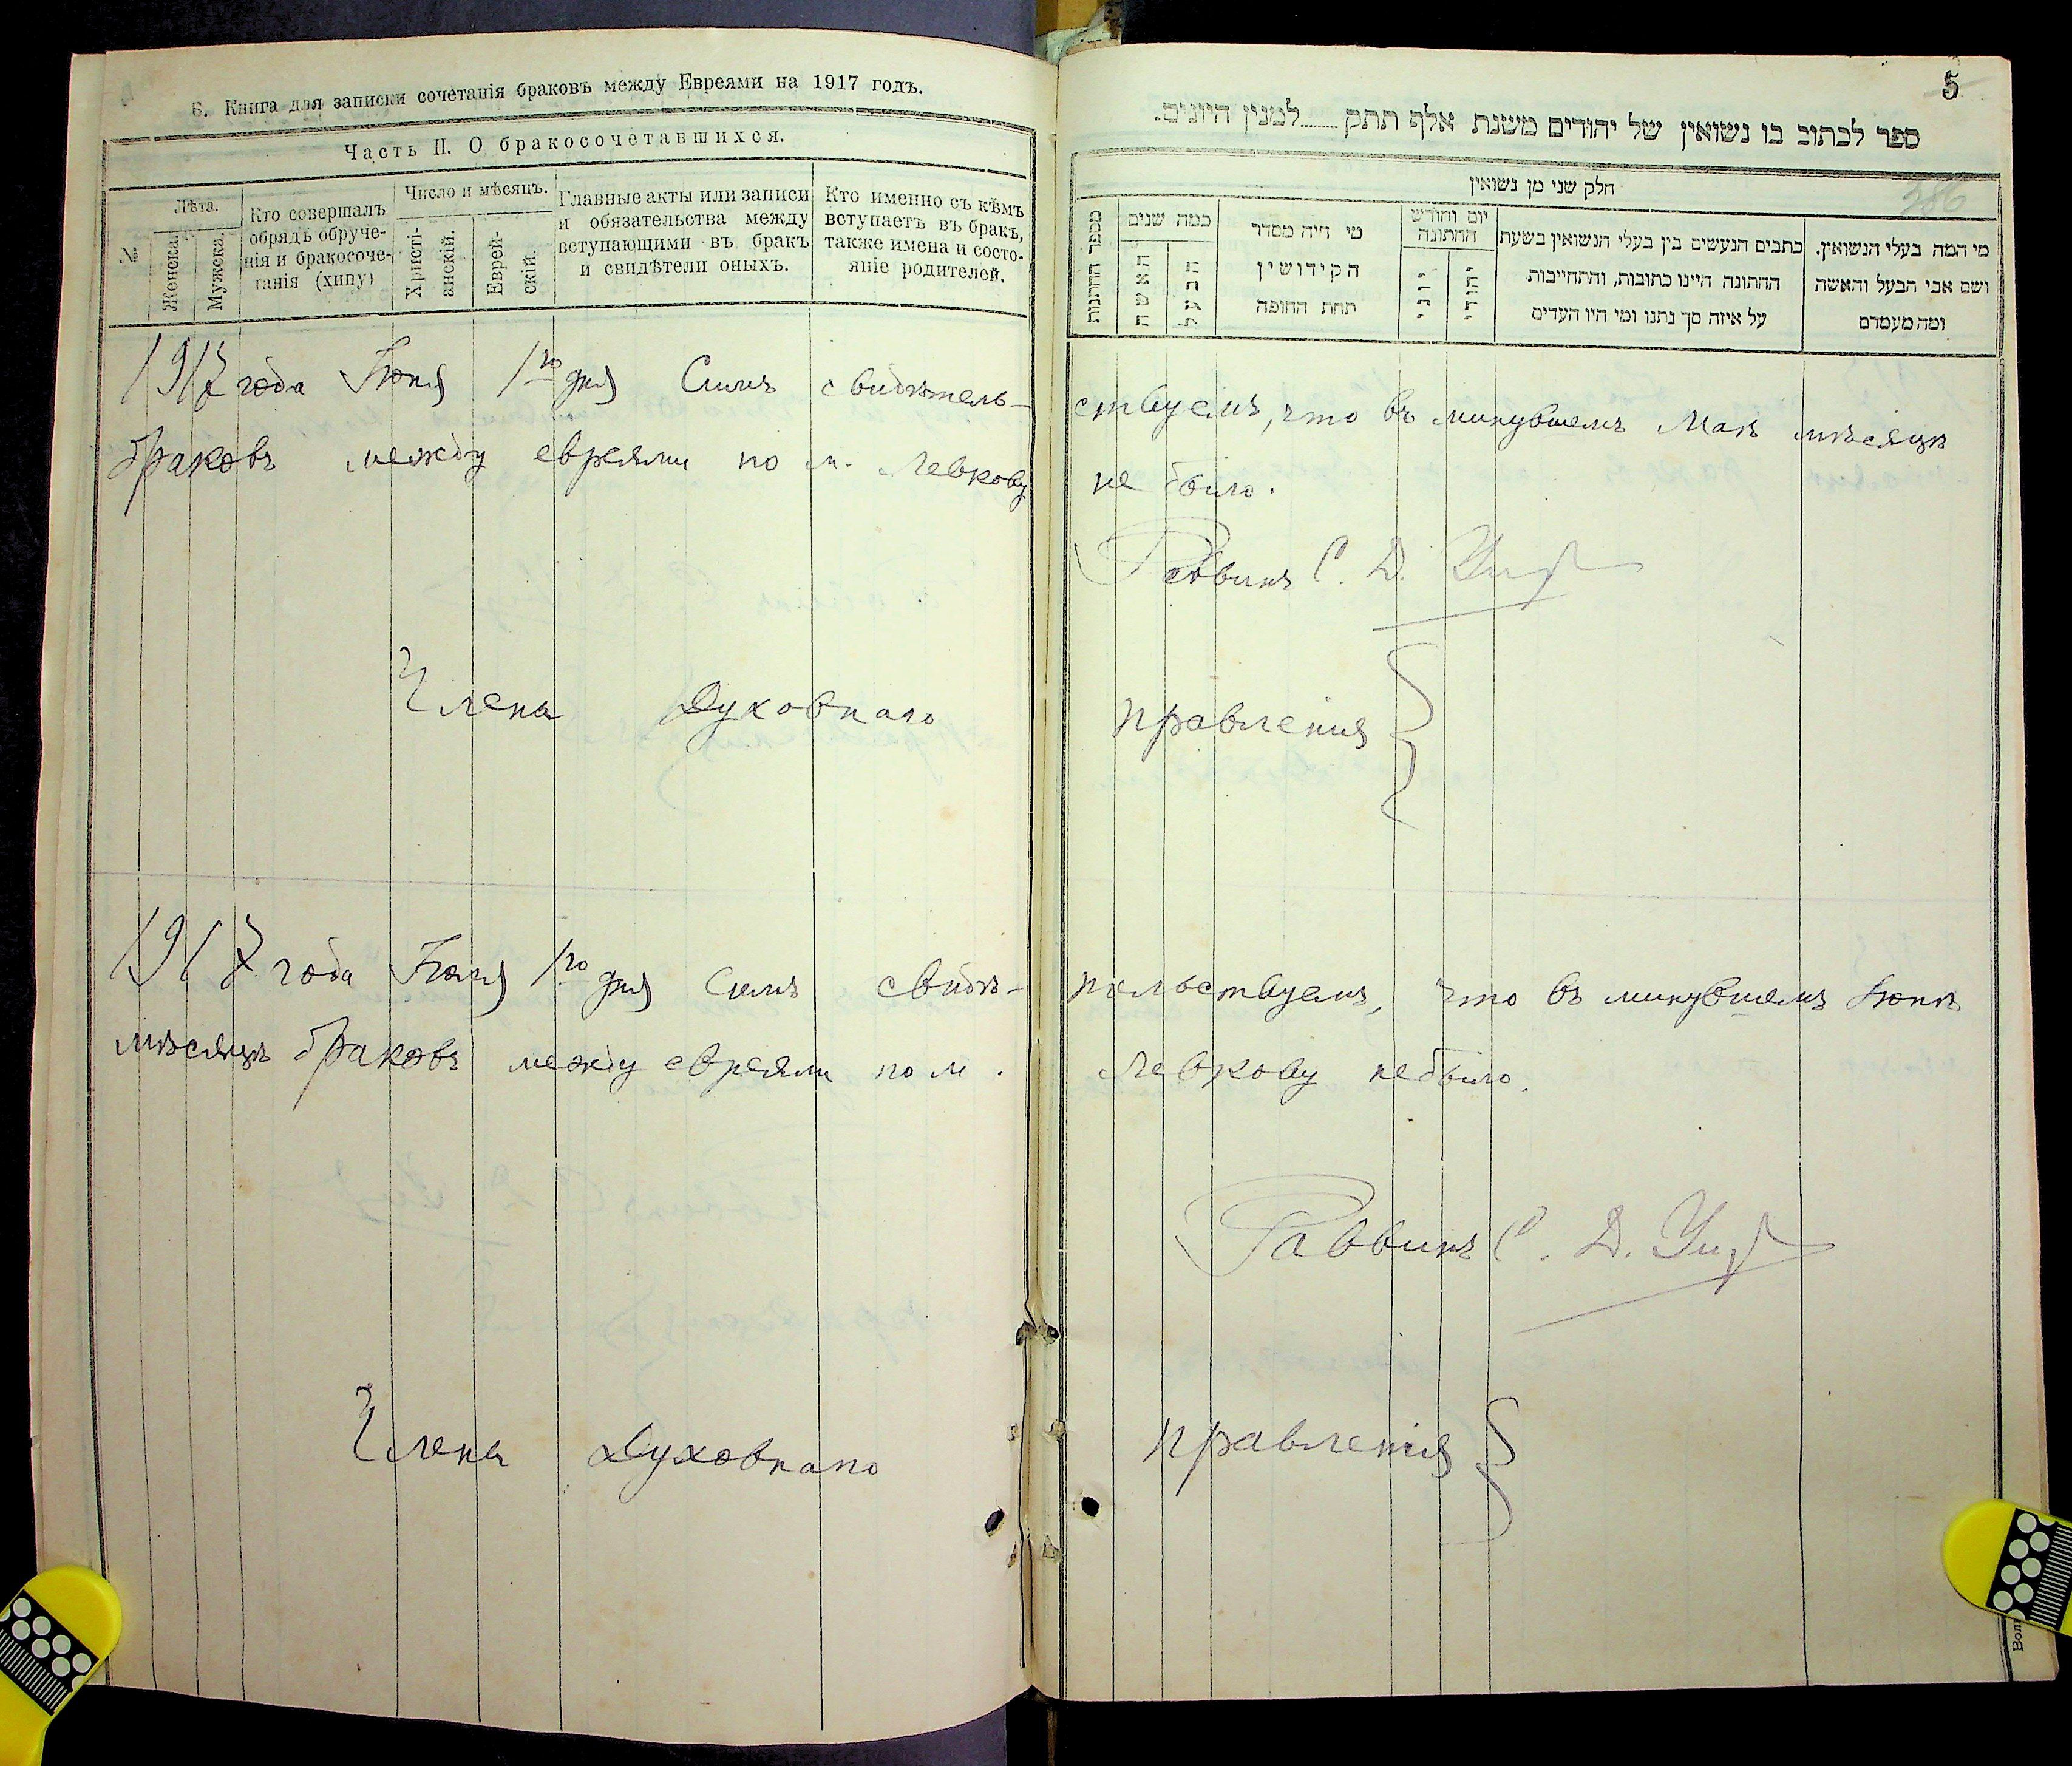 Б. Книга для записки сочетанія браковъ между Евреями на 1917 годъ.
Часть II. О бракосочетавшихся.
№
Лѣта.
Женска.
Мужска.
Кто совершалъ
обрядъ обруче-
нія и бракосоче-
танія (хипу)
Число и мѣсяцъ.
Христі-
анскій.
Еврей-
скій.
Главные акты или записи
и обязательства между
вступающими въ бракъ
и свидѣтели оныхъ.
Кто именно съ кѣмъ
вступаетъ въ бракъ,
также имена и состо-
яніе родителей.
1917 года Іюня 1го дня Симъ свидѣтель-
браковъ между евреями по м. Левкову
Члены Духовнаго
1917 года Іюля 1го дня Симъ свидѣ-
мѣсяцѣ браковъ между евреями по м.
Члены Духовнаго
5
386
ספר לכתוב בו נשואין של יהודים משנת אלף תתק........למנין היונים.
חלק שני מן נשואין
מספר החתונות
כמה שנים
האשה
הבעל
מי היה מסדר
הקידושין
תחת החופה
יום וחודש
החתונה
יוני
יהודי
כתבים הנעשים בין בעלי הנשואין בשעת
החתונה היינו כתובות, והתחייבות
על איזה סך נתנו ומי היו העדים
מי המה בעלי הנשואין.
ושם אבי הבעל והאשה
ומה מעמדם
ствуемъ, что въ минувшемъ Маѣ мѣсяцѣ
не было.
Раввинъ С. Д.
правленія
тельствуемъ, что въ минувшемъ Іюнѣ
Левкову не было.
Раввинъ С. Д.
правленія